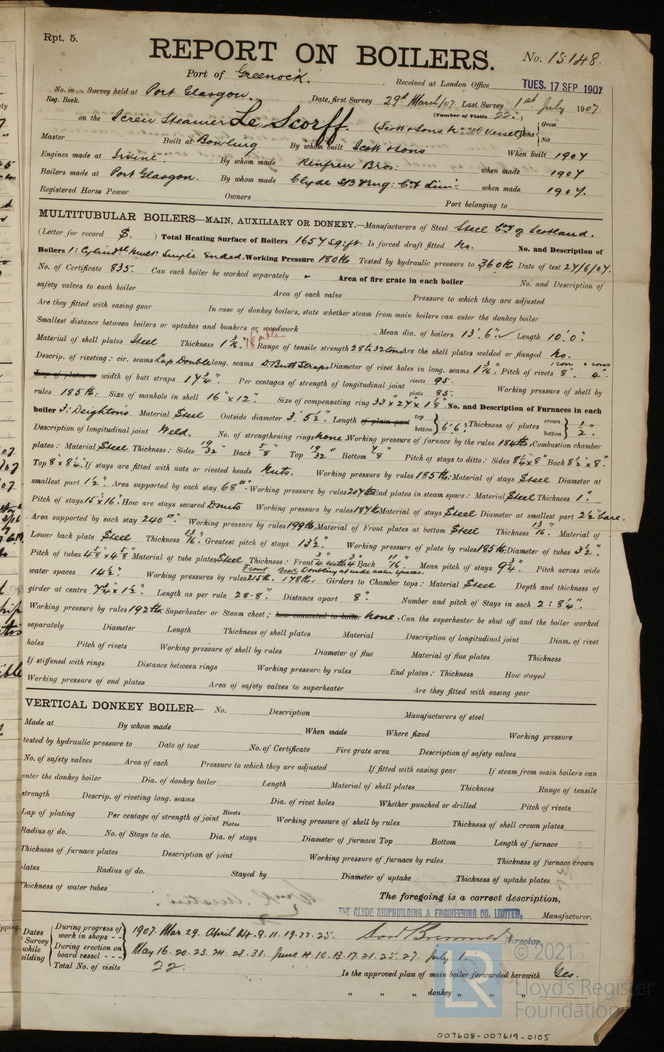 Rpt. 5.
REPORT ON BOILERS.
No. 15148.
Port of Greenock.
Received at London Office TUES. 17 SEP 1907
No. in Survey held at Port Glasgow. Date, first Survey 29th March/07. Last Survey 1st July 1907
Reg. Book.
(Number of Visits 22.)
on the Screw Steamer Le Scorff (Scott & Sons No 200 Vessel) Tons { Gross
Net
Master Built at Bowling By whom built Scott & Sons When built 1907
Engines made at Irvine By whom made Renfrew Bros: when made 1907
Boilers made at Port Glasgow. By whom made Clyde SB & Eng: Co Lim: when made 1907.
Registered Horse Power Owners Port belonging to
MULTITUBULAR BOILERS—MAIN, AUXILIARY OR DONKEY.—Manufacturers of Steel Steel Coy of Scotland.
(Letter for record S.) Total Heating Surface of Boilers 1657 sq. ft. Is forced draft fitted No. No. and Description of
Boilers 1: Cylindl Mult: Single Ended. Working Pressure 180 lb Tested by hydraulic pressure to 360 lb Date of test 27/6/07.
No. of Certificate 835. Can each boiler be worked separately - Area of fire grate in each boiler No. and Description of
safety valves to each boiler Area of each valve Pressure to which they are adjusted
Are they fitted with easing gear In case of donkey boilers, state whether steam from main boilers can enter the donkey boiler
Smallest distance between boilers or uptakes and bunkers or woodwork Mean dia. of boilers 13'. 6" Length 10'. 0"
Material of shell plates Steel Thickness Range of tensile strength 28 to 32 tons Are the shell plates welded or flanged No.
Descrip. of riveting: cir. seams Lap Double long. seams D. Butt Straps Diameter of rivet holes in long. seams 1 3/16" Pitch of rivets 8" 4"
Lap of plates or width of butt straps 17 3/4" Per centages of strength of longitudinal joint rivets 95. plate 85. Working pressure of shell by
rules 185 lb: Size of manhole in shell 16" x 12" Size of compensating ring 33" x 27" x 1 1/8" No. and Description of Furnaces in each
boiler 3: Deightons. Material Steel Outside diameter 3'. 5 1/2" Length of plain part top bottom 6'. 6" Thickness of plates crown bottom 1/2"
Description of longitudinal joint Weld. No. of strengthening rings None. Working pressure of furnace by the rules 184 lb. Combustion chamber
plates: Material Steel Thickness: Sides 19/32" Back 5/8" Top 19/32" Bottom 7/8" Pitch of stays to ditto: Sides 8 1/4" x 8" Back 8 1/2" x 8"
Top 8" x 8 1/4" If stays are fitted with nuts or riveted heads Nuts. Working pressure by rules 185 lb: Material of stays Steel Diameter at
smallest part 1 1/2" Area supported by each stay 68" Working pressure by rules 207 lb End plates in steam space: Material Steel Thickness 1"
Pitch of stays 15" x 16" How are stays secured D nuts Working pressure by rules 187 lb Material of stays Steel Diameter at smallest part 2 1/2" bare.
Area supported by each stay 240" Working pressure by rules 199 lb Material of Front plates at bottom Steel Thickness 13/16" Material of
Lower back plate Steel Thickness 13/16" Greatest pitch of stays 13 1/2" Working pressure of plate by rules 185 lb Diameter of tubes 3 1/2"
Pitch of tubes Material of tube plates Steel Thickness: Front 3/4" Back 11/16" Mean pitch of stays 9 3/4" Pitch across wide
water spaces 14 1/2" Working pressures by rules 215 lb. 178 lb. Girders to Chamber tops: Material Steel Depth and thickness of
girder at centre 7 3/4" x 1 1/2" Length as per rule 28.8" Distance apart 8" Number and pitch of Stays in each 2: 8 1/4"
Working pressure by rules 192 lb: Superheater or Steam chest; how connected to boiler None. Can the superheater be shut off and the boiler worked
separately Diameter Length Thickness of shell plates Material Description of longitudinal joint Diam. of rivet
holes Pitch of rivets Working pressure of shell by rules Diameter of flue Material of flue plates Thickness
If stiffened with rings Distance between rings Working pressure by rules End plates: Thickness How stayed
Working pressure of end plates Area of safety valves to superheater Are they fitted with easing gear
VERTICAL DONKEY BOILER— No. Description Manufacturers of steel
Made at By whom made When made Where fixed Working pressure
tested by hydraulic pressure to Date of test No. of Certificate Fire grate area Description of safety valves
No. of safety valves Area of each Pressure to which they are adjusted If fitted with easing gear If steam from main boilers can
enter the donkey boiler Dia. of donkey boiler Length Material of shell plates Thickness Range of tensile
strength Descrip. of riveting long. seams Dia. of rivet holes Whether punched or drilled Pitch of rivets
Lap of plating Per centage of strength of joint Rivets Plates Working pressure of shell by rules Thickness of shell crown plates
Radius of do. No. of Stays to do. Dia. of stays Diameter of furnace Top Bottom Length of furnace
Thickness of furnace plates Description of joint Working pressure of furnace by rules Thickness of furnace crown
plates Radius of do. Stayed by Diameter of uptake Thickness of uptake plates
Thickness of water tubes
The foregoing is a correct description,
THE CLYDE SHIPBUILDING & ENGINEERING CO. LIMITED, Manufacturer.
Director.
Dates of Survey while building { During progress of work in shops - - 1907. Mar 29. April 24. 9. 11. 19. 22. 25.
During erection on board vessel - - - May 16. 20. 23. 24. 28. 31. June 4. 10. 13. 17. 21. 25. 27. July 1.
Total No. of visits 22.
Is the approved plan of main boiler forwarded herewith Yes.
" " " donkey " " "
© 2021
Lloyd's Register
Foundation
007608-007619-0105